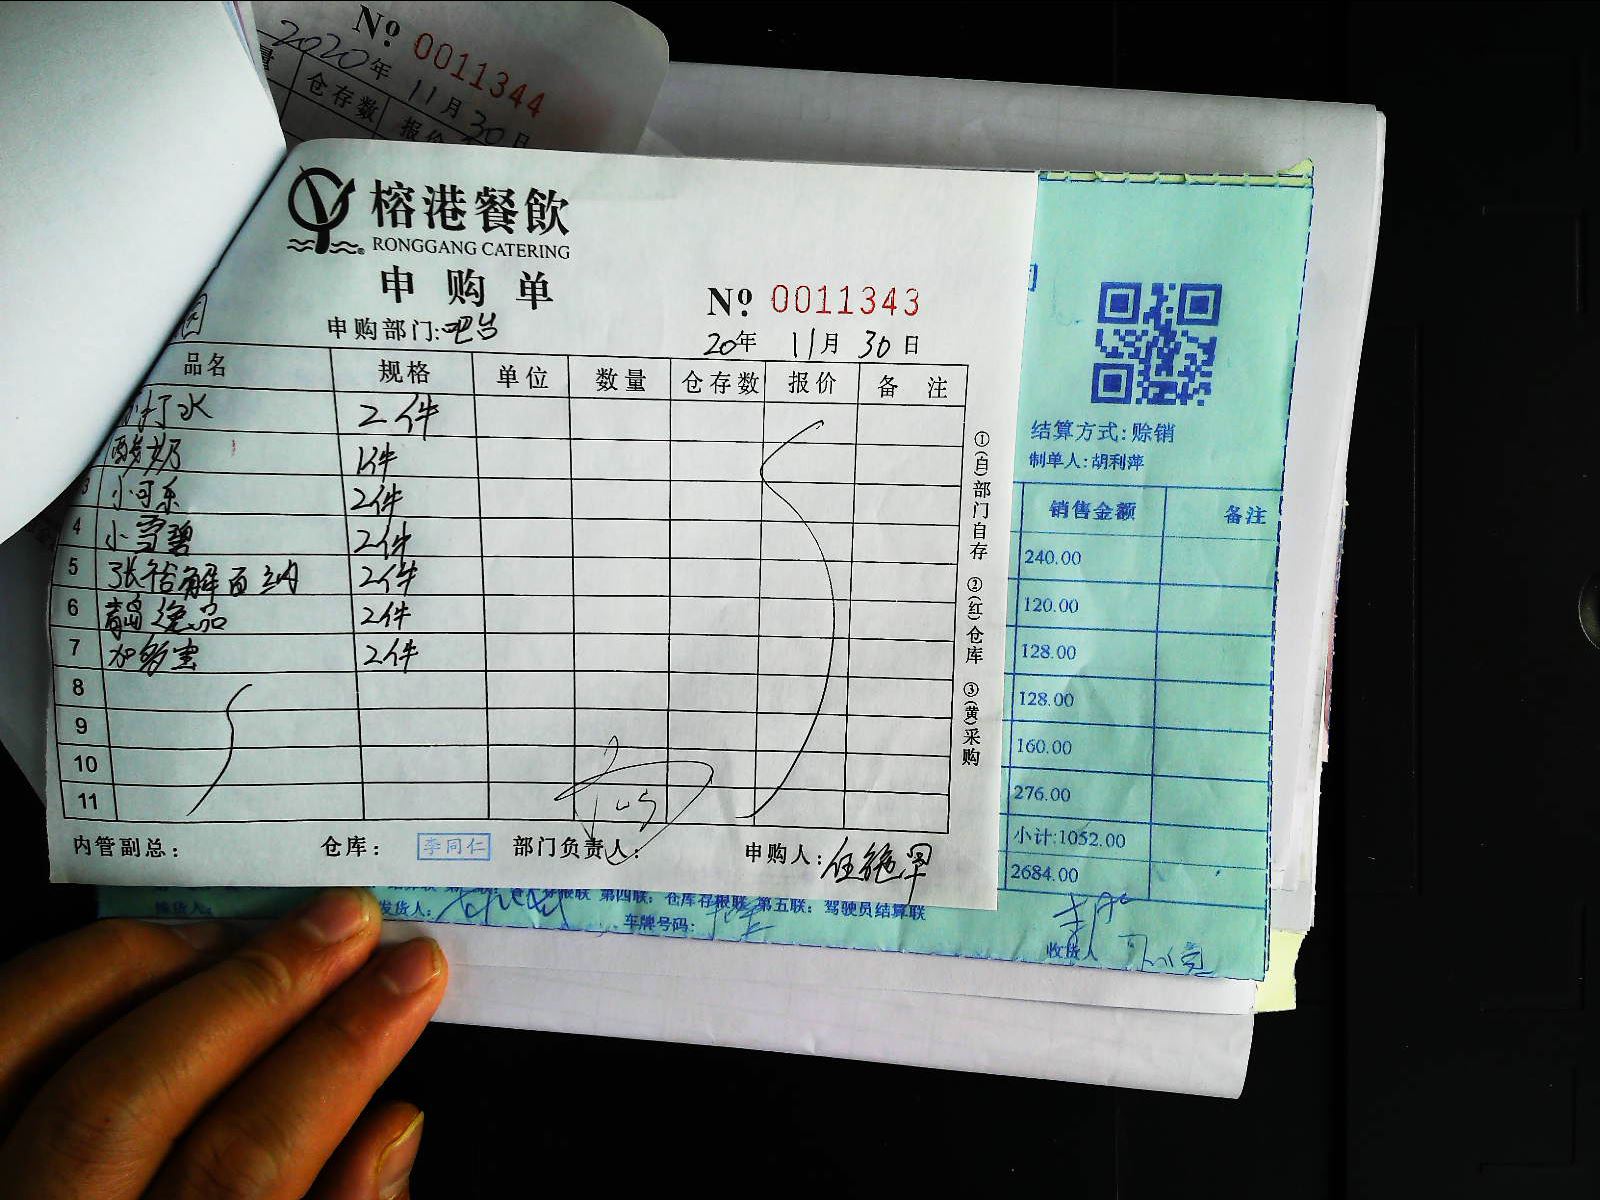 № 0011344
2020年 11月 30日
量 仓存数 报价
榕港餐飲
RONGGANG CATERING
申购单
№ 0011343
申购部门:吧台
20年 11月 30日
品名 规格 单位 数量 仓存数 报价 备注
打水 2件
酸奶 1件
3 小可乐 2件
4 小雪碧 2件
5 2件
6 青岛逸品 2件
7 加多宝 2件
8
9
10
11
①(白)部门自存 ②(红)仓库 ③(黄)采购
内管副总: 仓库: 李同仁 部门负责人: 申购人:
结算方式:赊销
制单人:胡利萍
销售金额 备注
240.00
120.00
128.00
128.00
160.00
276.00
小计:1052.00
2684.00
存根联 第四联:仓库存根联 第五联:驾驶员结算联
发货人:
车牌号码:
收货人